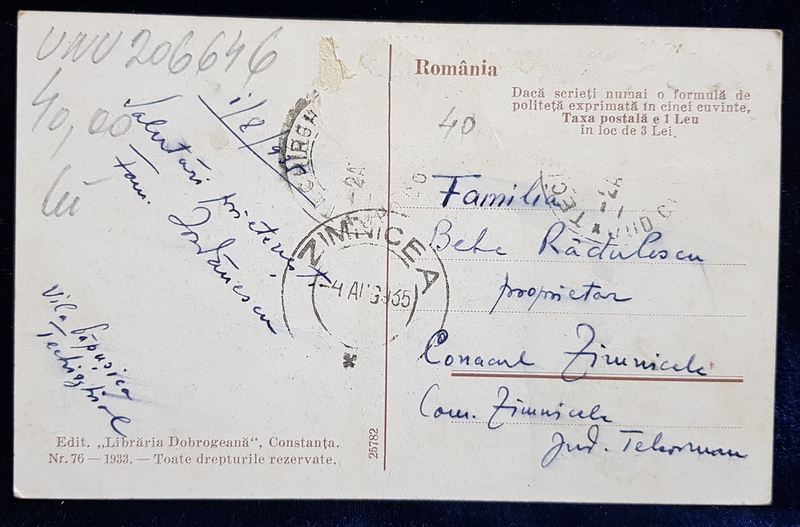 UNU 206646
40,00
lei
1/8/9
Salutări prietenești
Fam. Iordănescu
Vila Păpușica
Techirghiol
Edit. „Librăria Dobrogeană“, Constanța.
Nr. 76 — 1933. — Toate drepturile rezervate.
25782
ZIMNICEA
-4 AUG 935
România
Dacă scrieți numai o formulă de
politeță exprimată în cinci cuvinte,
Taxa postală e 1 Leu
în loc de 3 Lei.
40
Familia
Bebe Rădulescu
proprietar
Conacul Zimnicele
Com. Zimnicele
Jud. Teleorman